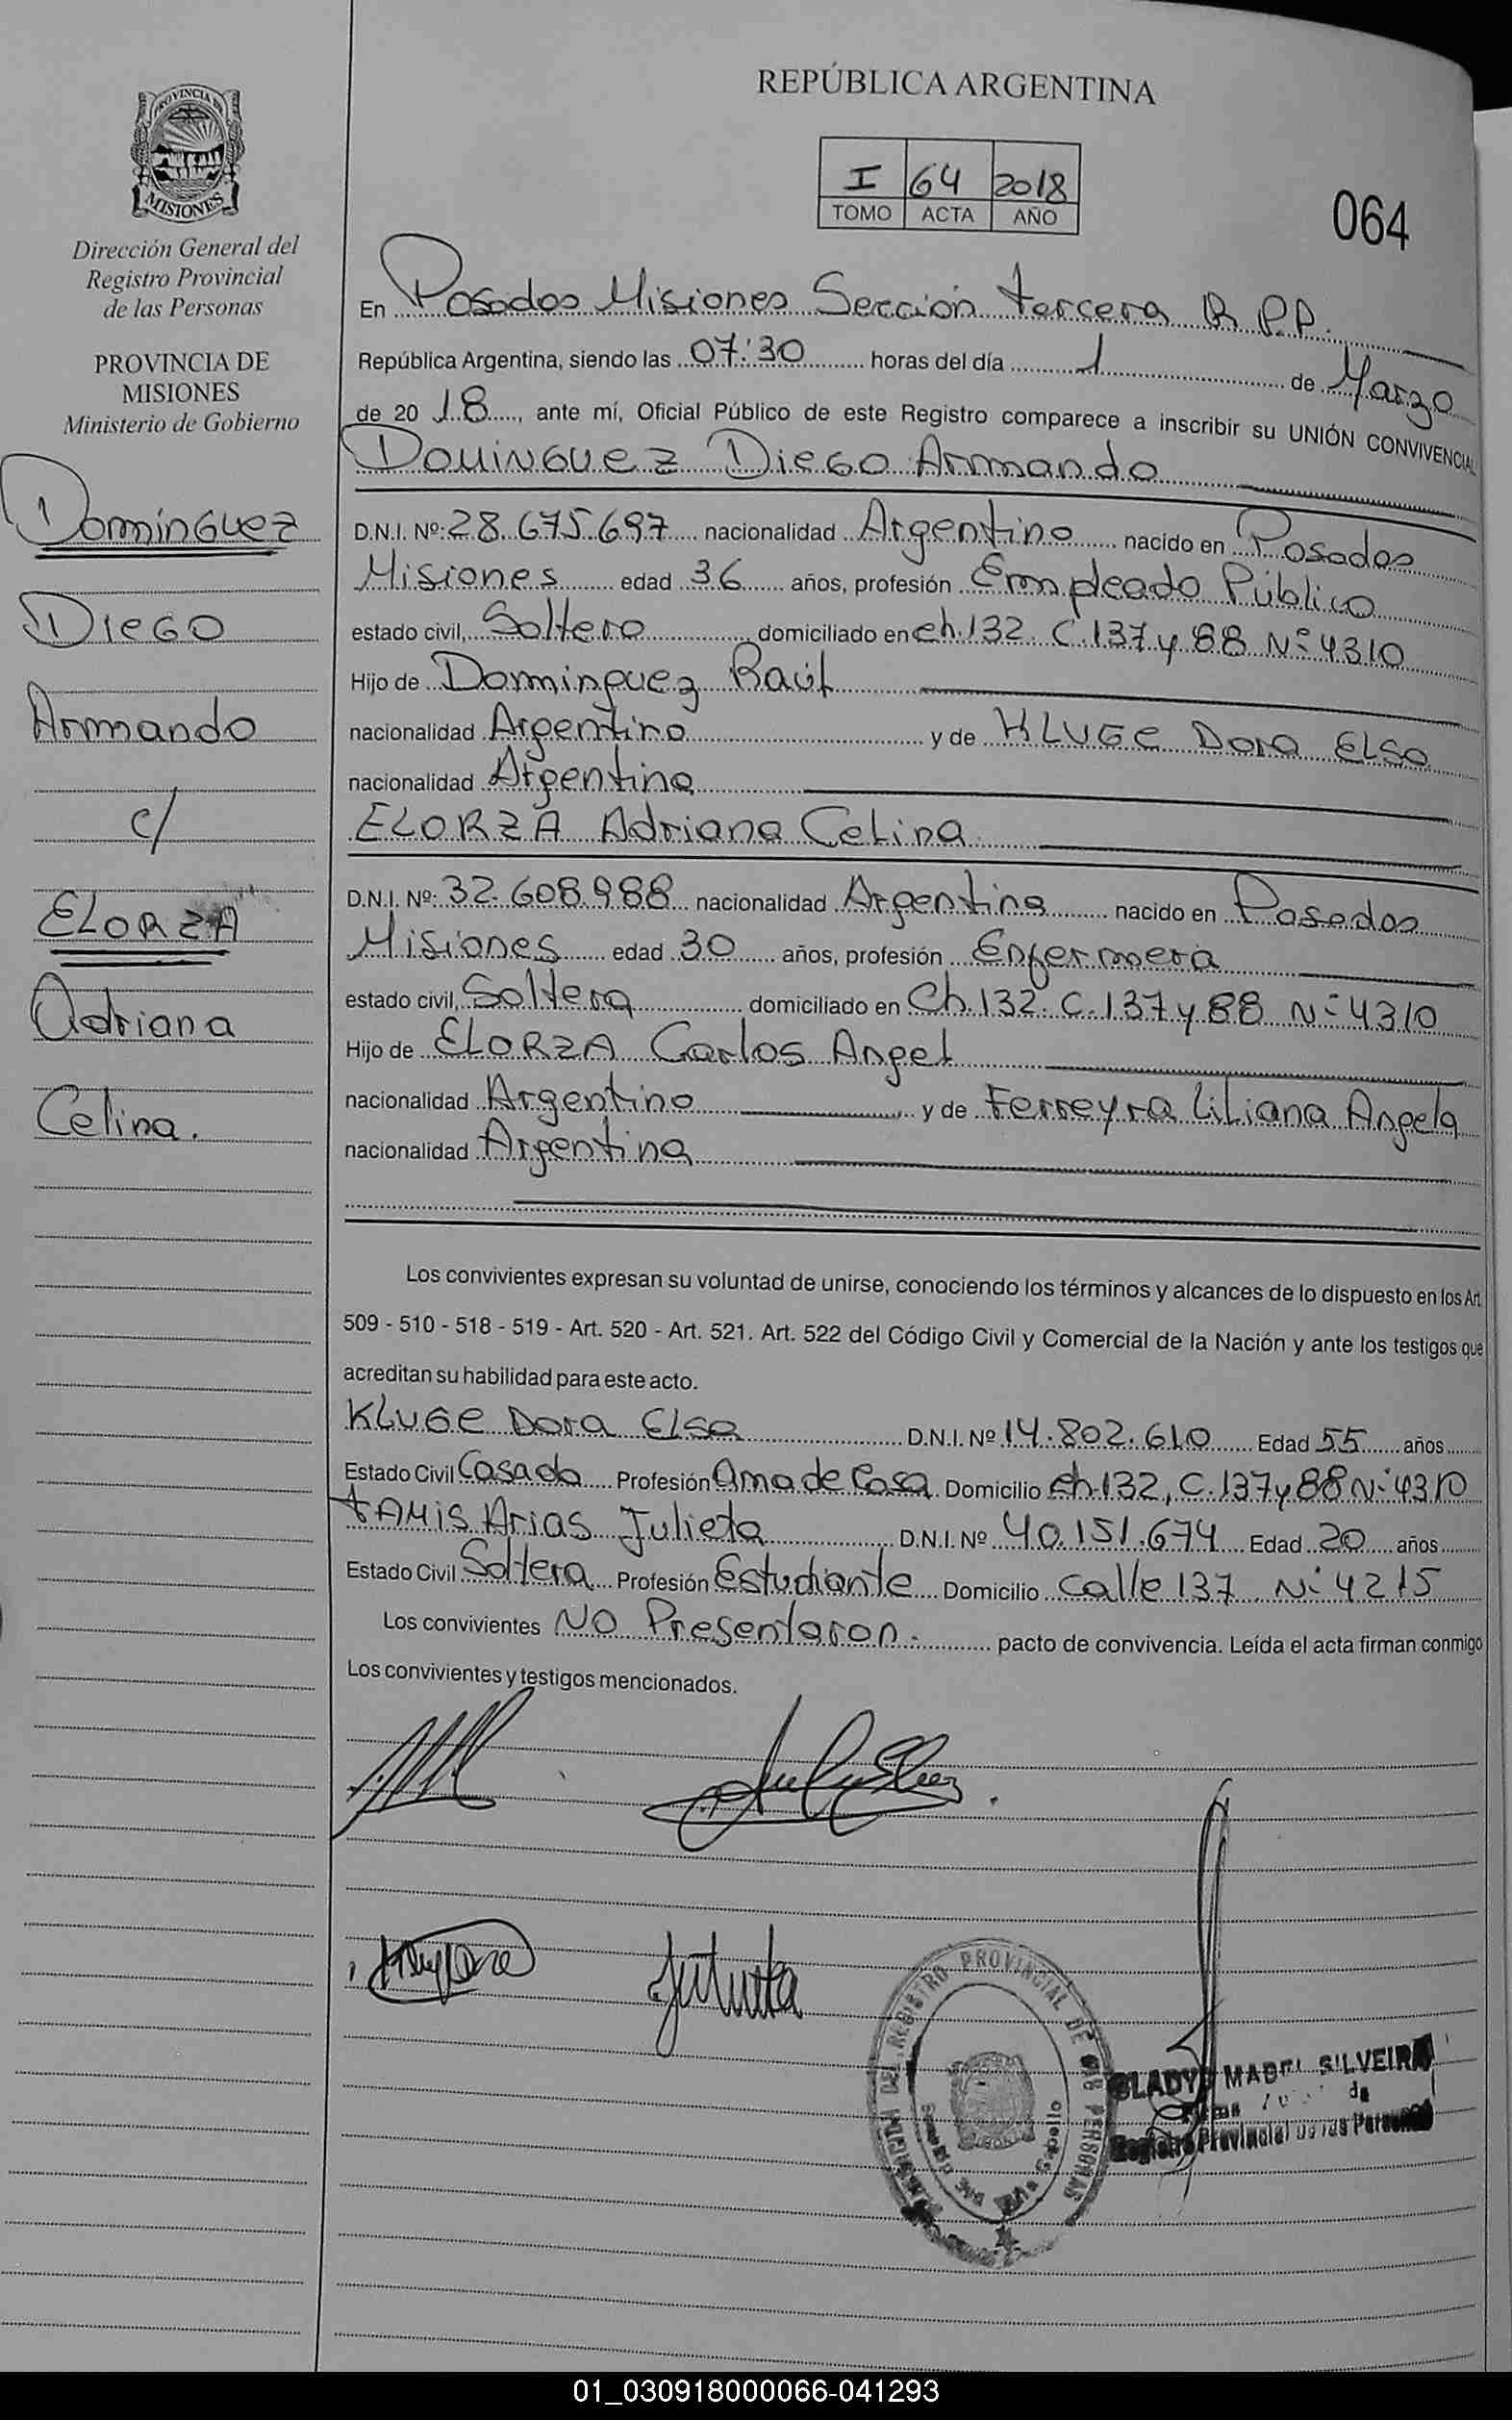 PROVINCIA DE
MISIONES
Dirección General del
Registro Provincial
de las Personas
PROVINCIA DE
MISIONES
Ministerio de Gobierno
Dominguez
Diego
Armando
c/
ELORZA
Adriana
Celina.
REPÚBLICA ARGENTINA
I 64 2018
TOMO ACTA AÑO
064
En Posadas Misiones Sección tercera R.P.P.
República Argentina, siendo las 07:30 horas del día 1 de Marzo
de 2018, ante mí, Oficial Público de este Registro comparece a inscribir su UNIÓN CONVIVENCIAL
DOMINGUEZ Diego Armando
D.N.I. Nº: 28.675.697 nacionalidad Argentino nacido en Posadas
Misiones edad 36 años, profesión Empleado Público
estado civil, Soltero domiciliado en ch.132. C.137 y 88 Nº 4310
Hijo de Dominguez Raúl
nacionalidad Argentino y de KLUGE DORA ELSA
nacionalidad Argentina
ELORZA Adriana Celina
D.N.I. Nº: 32.608.988 nacionalidad Argentina nacido en Posadas
Misiones edad 30 años, profesión Enfermera
estado civil, Soltera domiciliado en Ch.132. C.137 y 88 Nº 4310
Hijo de ELORZA Carlos Angel
nacionalidad Argentino y de Ferreyra Liliana Angela
nacionalidad Argentina
Los convivientes expresan su voluntad de unirse, conociendo los términos y alcances de lo dispuesto en los Art.
509 - 510 - 518 - 519 - Art. 520 - Art. 521. Art. 522 del Código Civil y Comercial de la Nación y ante los testigos que
acreditan su habilidad para este acto.
KLUGE DORA ELSA D.N.I. Nº 14.802.610 Edad 55 años
Estado Civil Casada Profesión Ama de Casa Domicilio ch.132, C.137 y 88 Nº 4310
TAMIS Arias Julieta D.N.I. Nº 40.151.674 Edad 20 años
Estado Civil Soltera Profesión Estudiante Domicilio Calle 137 Nº 4215
Los convivientes NO Presentaron. pacto de convivencia. Leída el acta firman conmigo
Los convivientes y testigos mencionados.
Julieta
DEL REGISTRO PROVINCIAL DE LAS PERSONAS
GLADYS MABEL SILVEIRA
de
Registro Provincial de las Personas
01_030918000066-041293